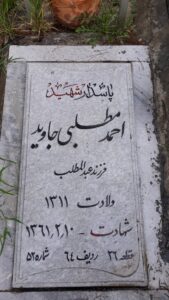 پاسدار شهید
احمد مطلبی جاوید
فرزند عبدالمطلب
ولادت ۱۳۱۱
شهادت - ۱۳۶۱٫۲٫۱۰
قطعه ۲۶ ردیف ۶۴ شماره ۵۲